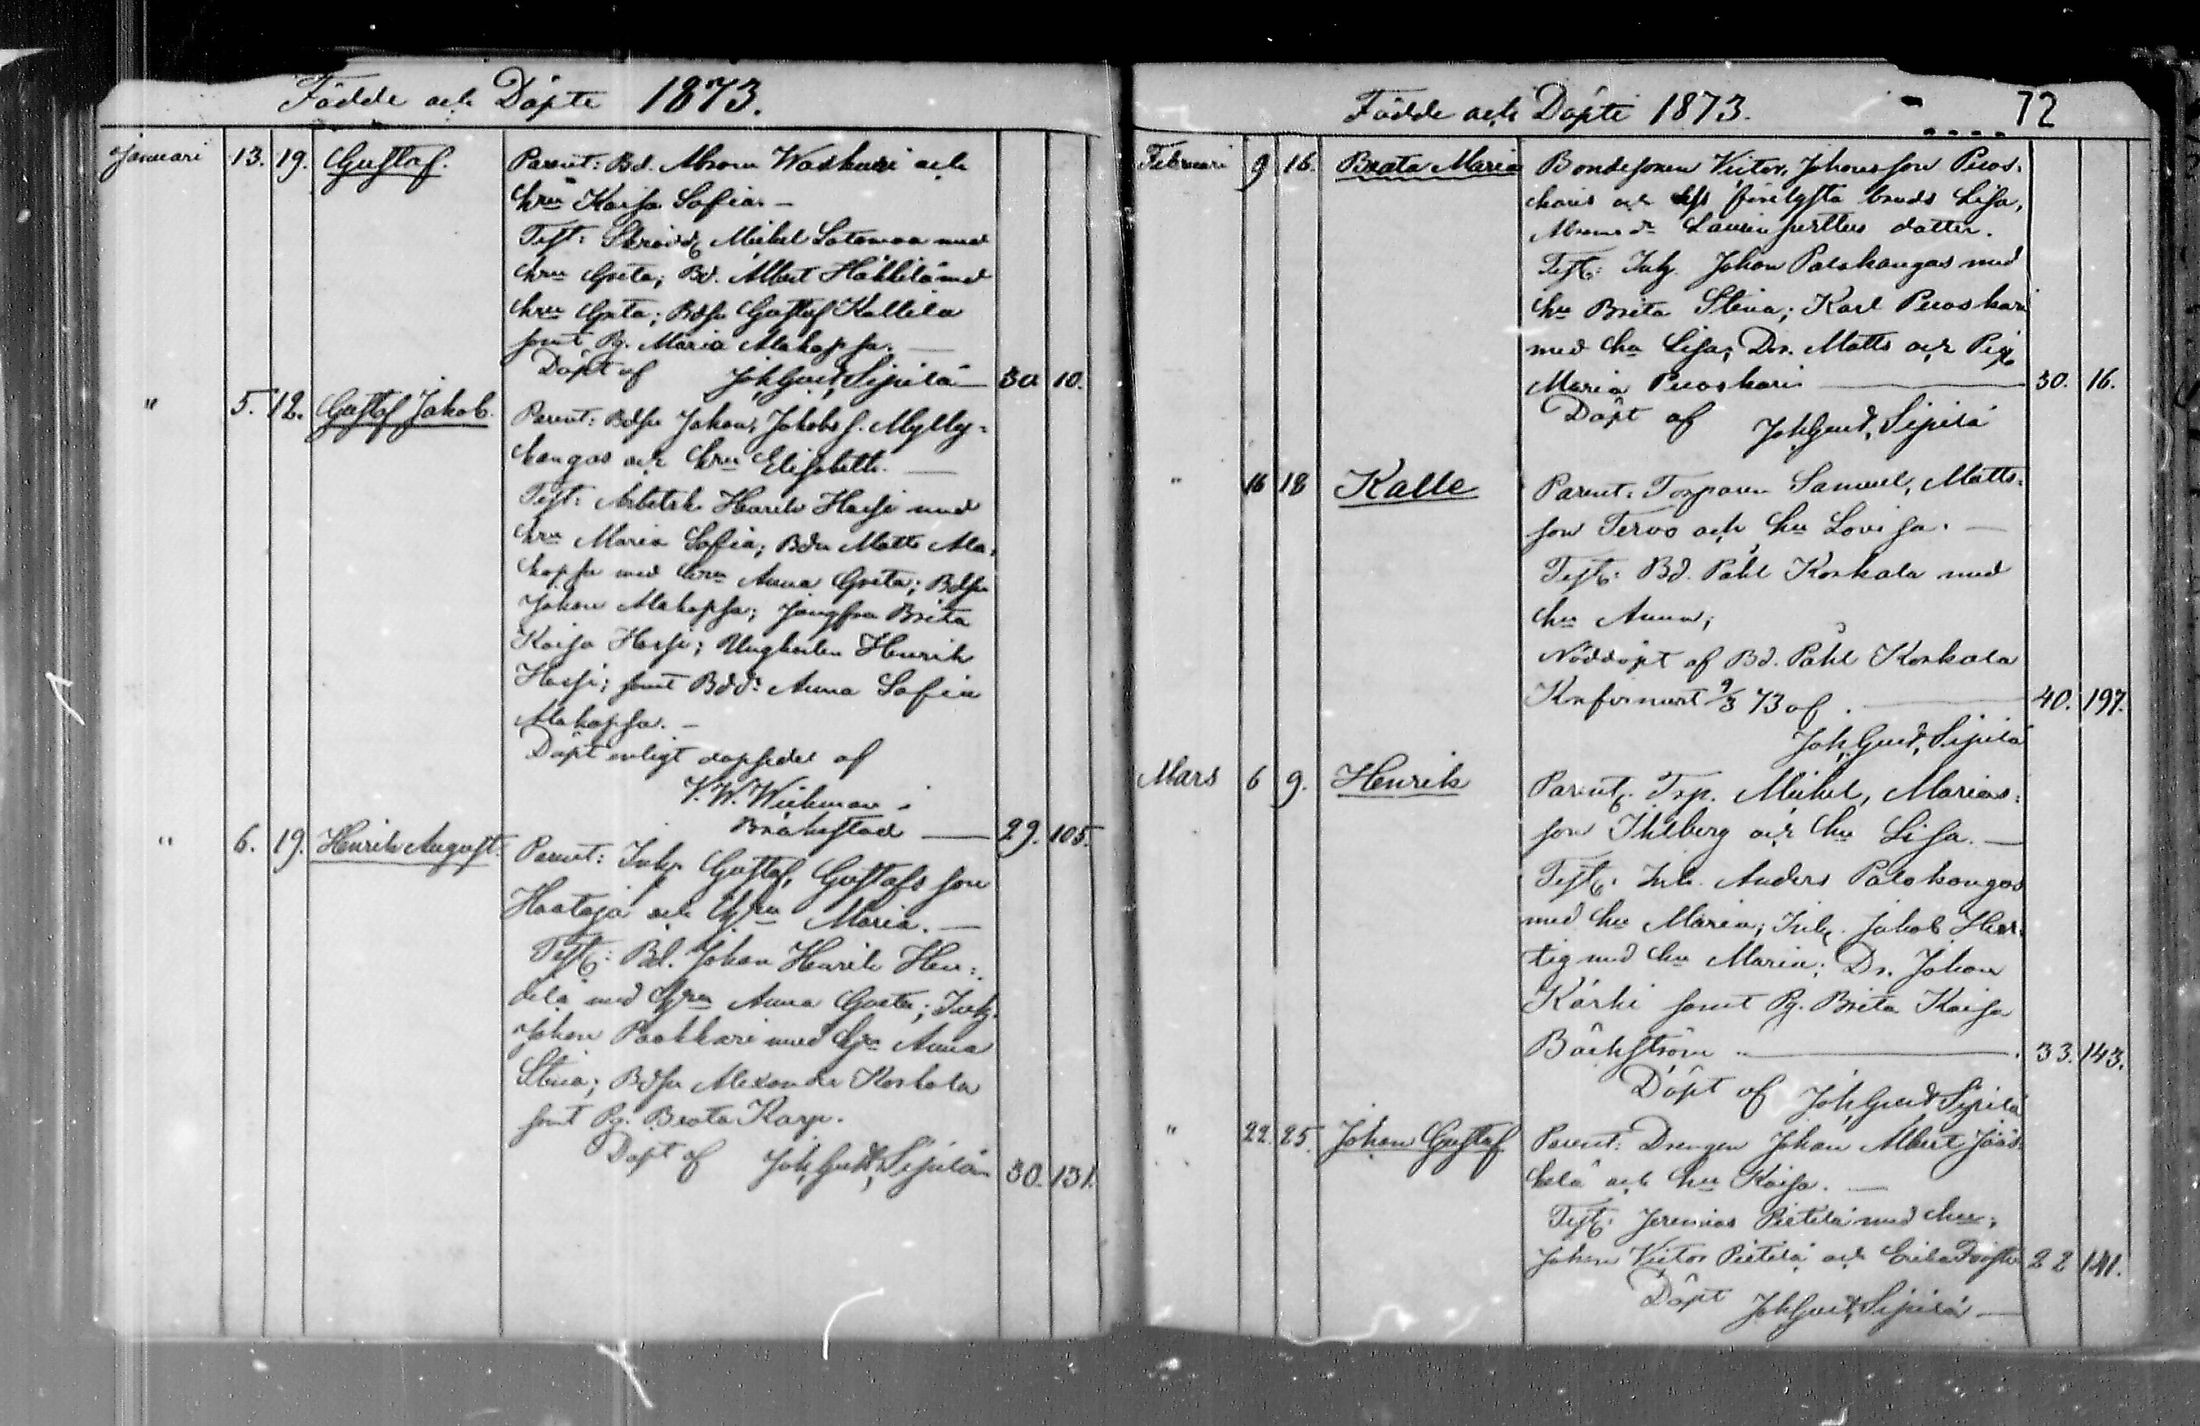 Födde och Döpte 1873.
Januari 13. 19. Gustaf. Parent: Bd. Abram Waskari och
hru Kaisa Sofia. –
Test: Skrädd. Mickel Satomaa med
hru Greta; Bd. Albert Häkkilä med
hru Greta; Bdsn Gustaf Kallila
samt Pg. Maria Alakopsa. —
Döpt af Joh. Gust. Sipilä — 30 10.
" 5. 12. Gustaf Jakob. Parent: Bdsn Johan, Jakobs s. Mylly-
kangas och hru Elisabeth. —
Test: Arbetsk. Henrik Hassi med
hru Maria Sofia; Bdn Matts Ala-
kopsa med hru Anna Greta; Bdsn
Johan Alakopsa; Jungfru Brita
Kaisa Hassi; Ungkarlen Henrik
Hassi; samt Bdd. Anna Sofia
Alakopsa. –
Döpt enligt dopsedel af
V. W. Wickman i
Brahestad — 29. 105.
" 6. 19. Henrik August. Parent: Inh. Gustaf, Gustafs son
Haataja och Hru Maria. —
Test: Bd. Johan Henrik Hei-
kilä med Hru Anna Greta; Inh.
Johan Paakkari med hru Anna
Stina; Bdsn Alexander Koskela
samt Pg. Beata Karp.
Döpt af Joh. Gust. Sipilä 30. 131.
Födde och Döpte 1873. 72
Februari 9 16. Beata Maria Bondesonen Victor, Johansson Puos-
kari och dess förelofta brud Lisa,
Abrams dr Laurinperttus dotter.
Test: Inh. Johan Palokangas med
hu Brita Stina; Karl Puoskari
med hu Lisa; Dr. Matts och Pig.
Maria Puoskari — 30. 16.
Döpt af Joh. Gust. Sipilä
" 16 18 Kalle Parent: Torparen Samuel, Matts-
son Tervo och hu Lovisa. —
Test: Bd. Påhl Koskela med
hu Anna;
Nöddöpt af Bd. Påhl Koskela
Konfirmert 9/3 73 af — 40. 197.
Joh. Gust. Sipilä
Mars 6 9. Henrik Parent. Trp. Mickel, Marias-
son Ihlberg och hu Lisa. —
Test: Inh. Anders Palokangas
med hu Maria; Inh. Jakob Her-
tig med hu Maria; Dr. Johan
Kärki samt Pg. Brita Kaisa
Bäckström — 33. 143.
Döpt af Joh. Gust. Sipilä
" 22. 25. Johan Gustaf Parent: Drengen Johan Albert Jääs-
kelä och hu Kaisa. —
Test: Jeremias Pietilä med hu;
Johan Victor Pietilä och 22 141.
Döpt Joh. Gust. Sipilä —